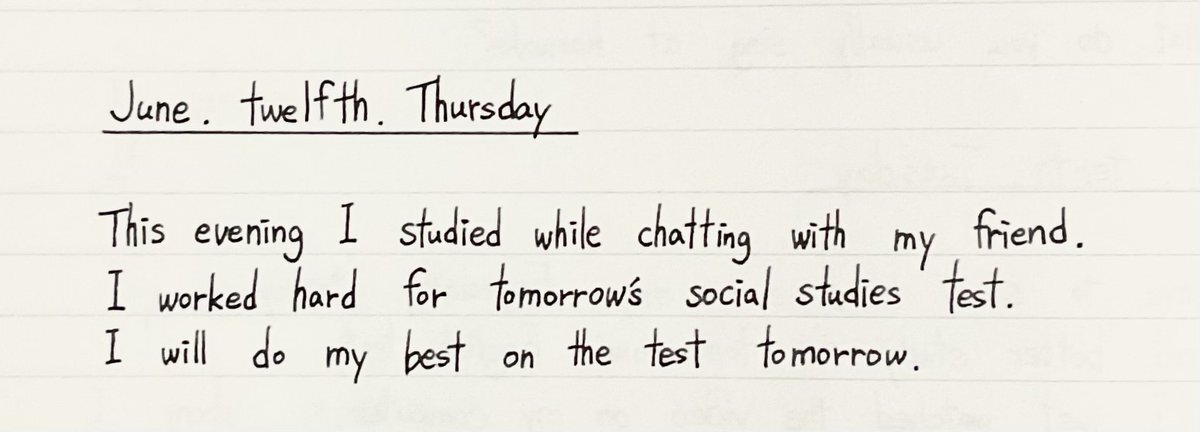 June. twelfth. Thursday
This evening I studied while chatting with my friend.
I worked hard for tomorrow's social studies test.
I will do my best on the test tomorrow.